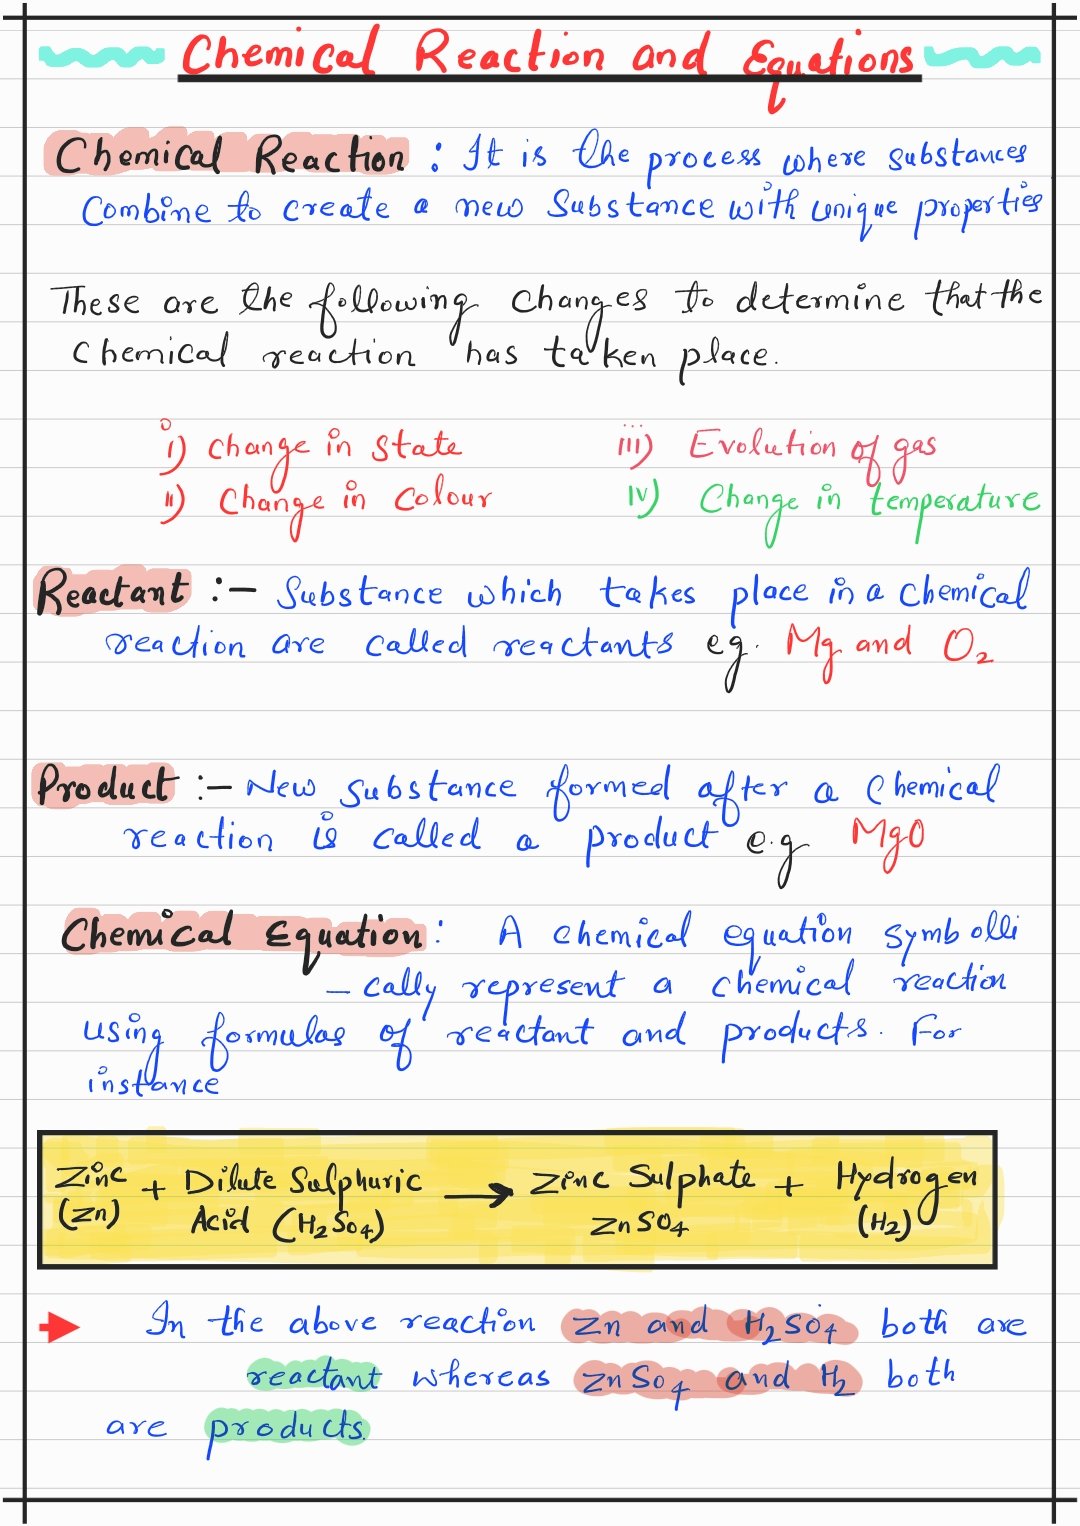 Chemical Reaction and Equations
Chemical Reaction : It is the process where substances
Combine to create a new Substance with unique properties
These are the following changes to determine that the
Chemical reaction has taken place.
i) change in state
iii) Evolution of gas
ii) Change in Colour
iv) Change in temperature
Reactant :- Substance which takes place in a chemical
reaction are called reactants eg. Mg and O₂
Product :- New substance formed after a chemical
reaction is called a product e.g MgO
Chemical Equation : A chemical equation symbolli
- cally represent a chemical reaction
using formulas of reactant and products. For
instance
Zinc + Dilute Sulphuric → Zinc Sulphate + Hydrogen
(Zn) Acid (H₂SO₄) ZnSO₄ (H₂)
In the above reaction Zn and H₂SO₄ both are
reactant whereas ZnSO₄ and H₂ both
are products